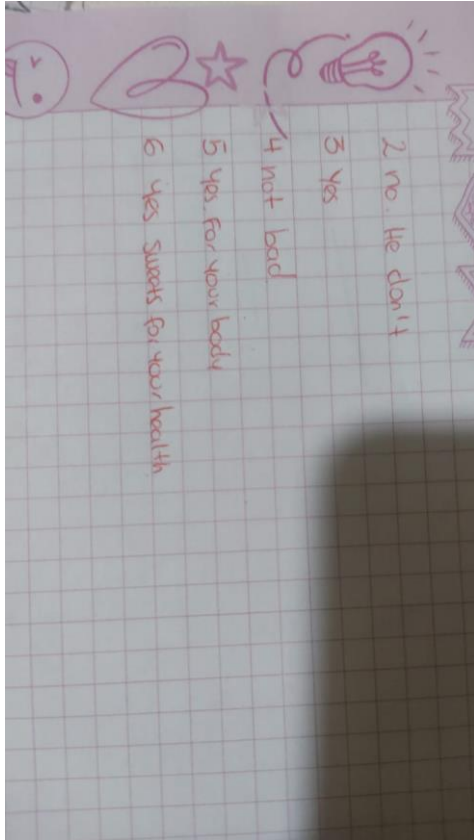 2 no. He don't
3 Yes
4 not bad
5 yes. for your body
6 yes sweats for your health